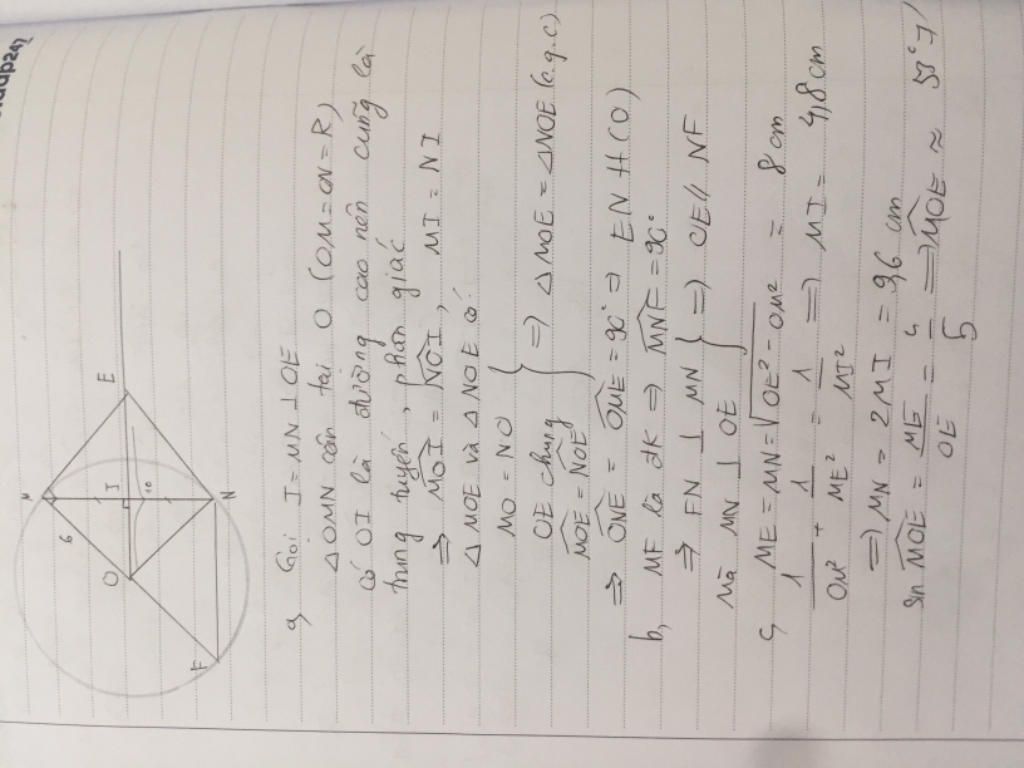 M
6
O
I
E
10
F
N
a, Gọi I = MN ⊥ OE
Δ OMN cân tại O (OM = ON = R)
có OI là đường cao nên cũng là
trung tuyến, phân giác
⇒ \widehat{MOI} = \widehat{NOI}, MI = NI
Δ MOE và Δ NOE có:
MO = NO
OE chung } ⇒ Δ MOE = Δ NOE (c.g.c)
\widehat{MOE} = \widehat{NOE}
⇒ \widehat{ONE} = \widehat{OME} = 90° ⇒ EN tt (O)
b, MF là đk ⇒ \widehat{MNF} = 90°
⇒ FN ⊥ MN } ⇒ OE // NF
Mà MN ⊥ OE
c, ME = MN = √(OE² - OM²) = 8 cm
1/OM² + 1/ME² = 1/MI² ⇒ MI = 4,8 cm
⇒ MN = 2MI = 9,6 cm
sin \widehat{MOE} = ME/OE = 4/5 ⇒ \widehat{MOE} ≈ 53°7'